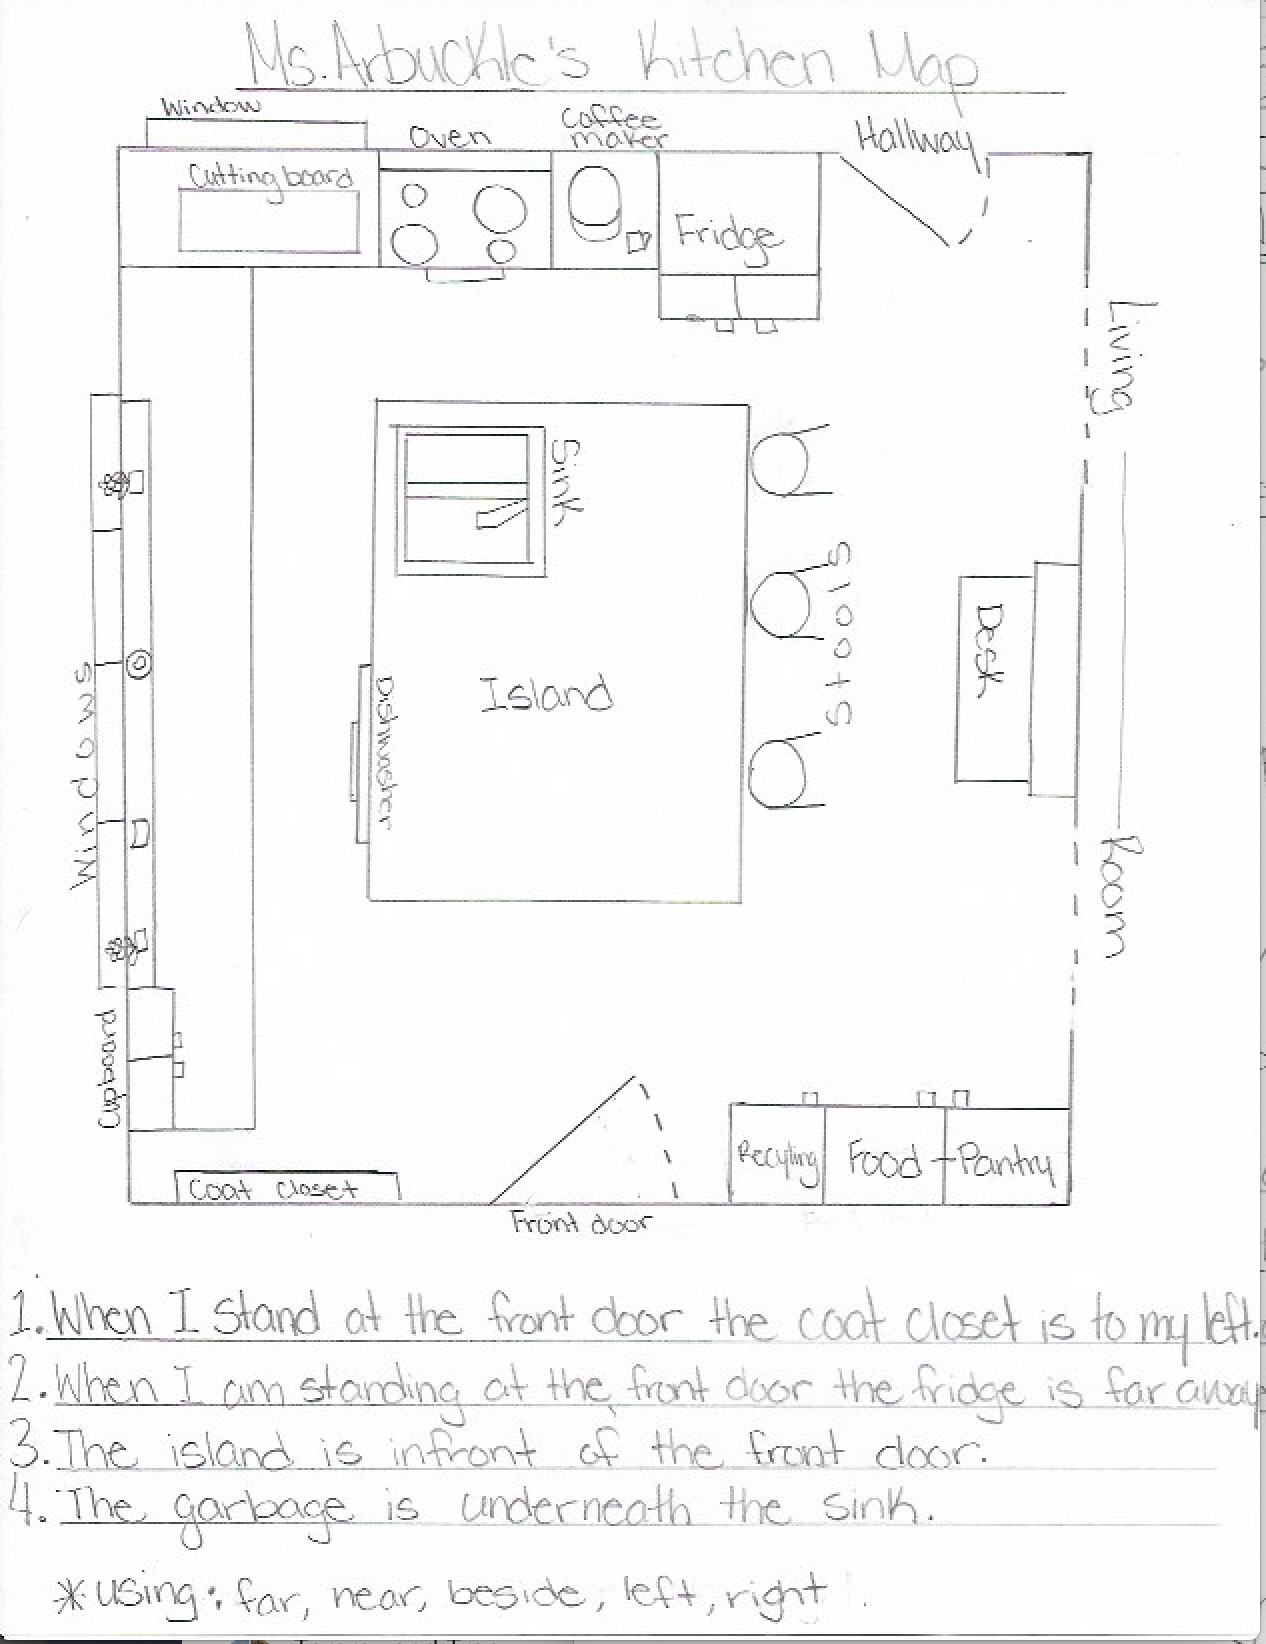 Ms. Arbuckle's Kitchen Map
Window
Oven
Coffee
maker
Hallway
Cutting board
Fridge
Living
Room
Sink
Stools
Desk
Island
Dishwasher
Windows
Cupboard
Coat Closet
Front door
Recyling
Food - Pantry
1. When I stand at the front door the coat closet is to my left.
2. When I am standing at the front door the fridge is far away
3. The island is infront of the front door.
4. The garbage is underneath the sink.
* using: far, near, beside, left, right.